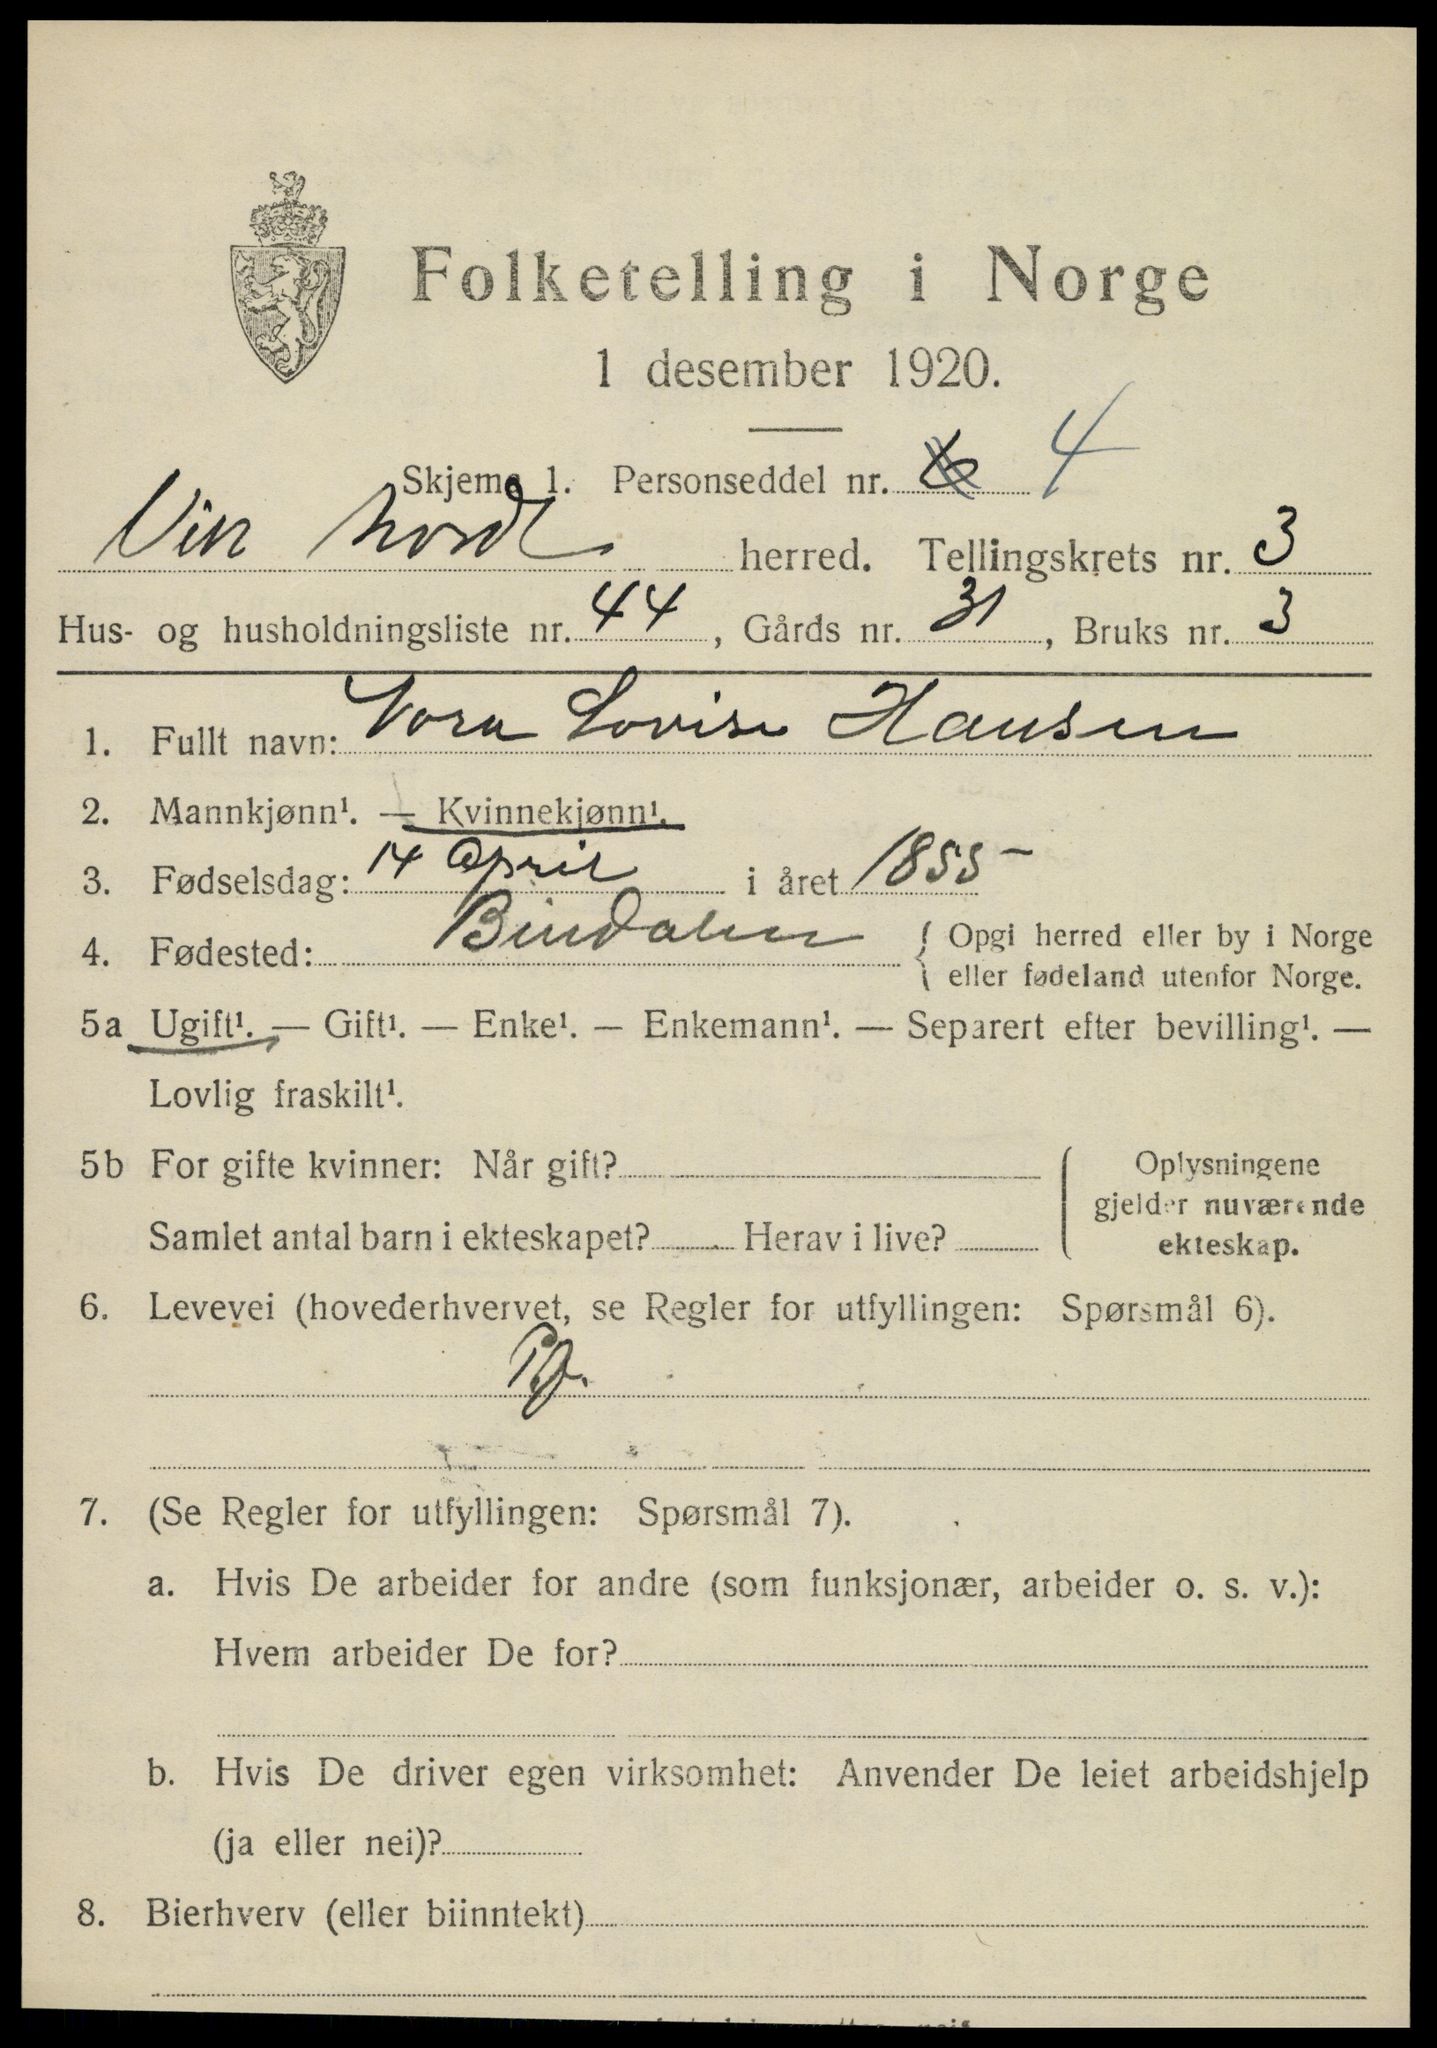 Folketelling i Norge
1 desember 1920.
Skjema 1. Personseddel nr. 6 4
Vik nord herred. Tellingskrets nr. 3
Hus- og husholdningsliste nr. 44, Gårds nr. 31, Bruks nr. 3
1. Fullt navn: Nora Lovise Hansen
2. Mannkjønn¹. — Kvinnekjønn¹.
3. Fødselsdag: 14 April i året 1855
4. Fødested: Bindalen { Opgi herred eller by i Norge
eller fødeland utenfor Norge.
5a Ugift¹. — Gift¹. — Enke¹. — Enkemann¹. — Separert efter bevilling¹. —
Lovlig fraskilt¹.
5b For gifte kvinner: Når gift?
Samlet antal barn i ekteskapet? Herav i live?
Oplysningene
gjelder nuværende
ekteskap.
6. Levevei (hovederhvervet, se Regler for utfyllingen: Spørsmål 6).
7. (Se Regler for utfyllingen: Spørsmål 7).
a. Hvis De arbeider for andre (som funksjonær, arbeider o. s. v.):
Hvem arbeider De for?
b. Hvis De driver egen virksomhet: Anvender De leiet arbeidshjelp
(ja eller nei)?
8. Bierhverv (eller biinntekt)